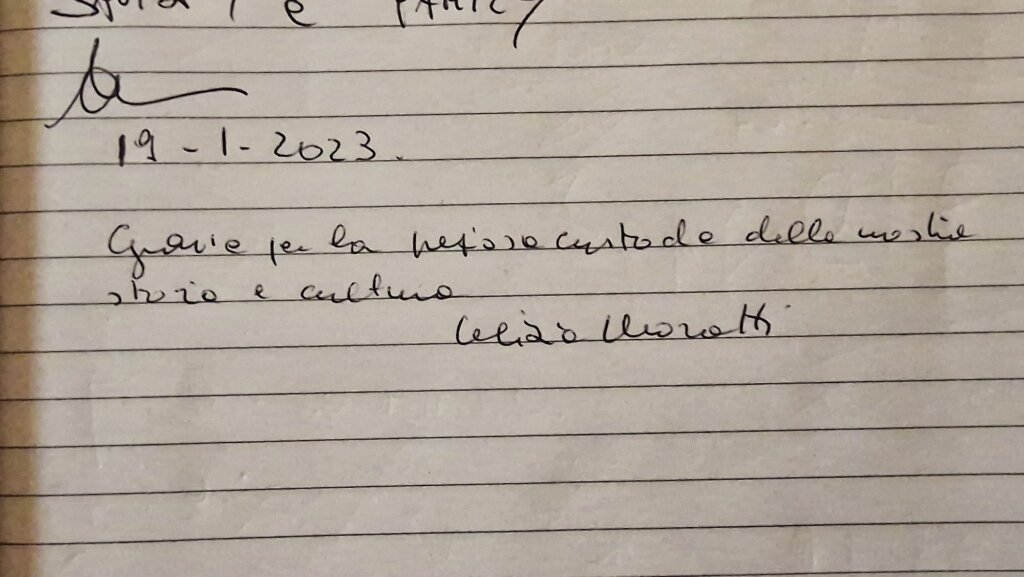 e
19-1-2023.
Grazie per la preziosa custode della nostra
storia e cultura
Letizia Moratti